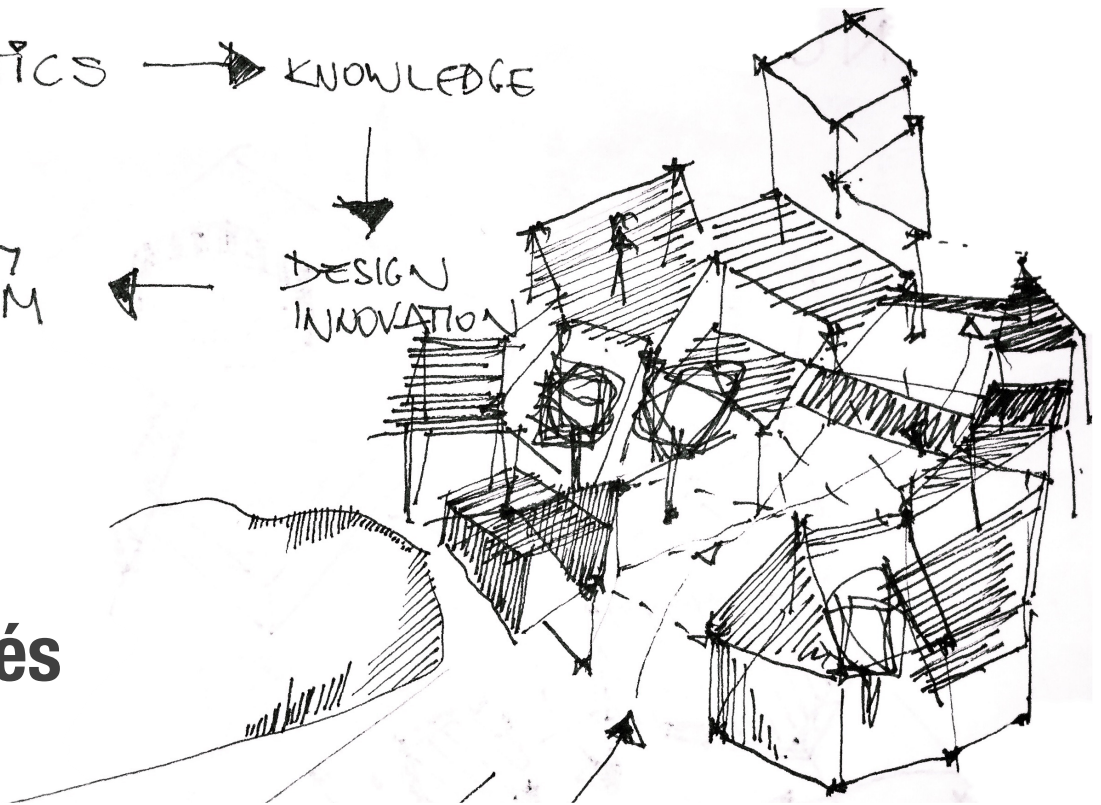 ICS
KNOWLEDGE
DESIGN
INNOVATION
M
és